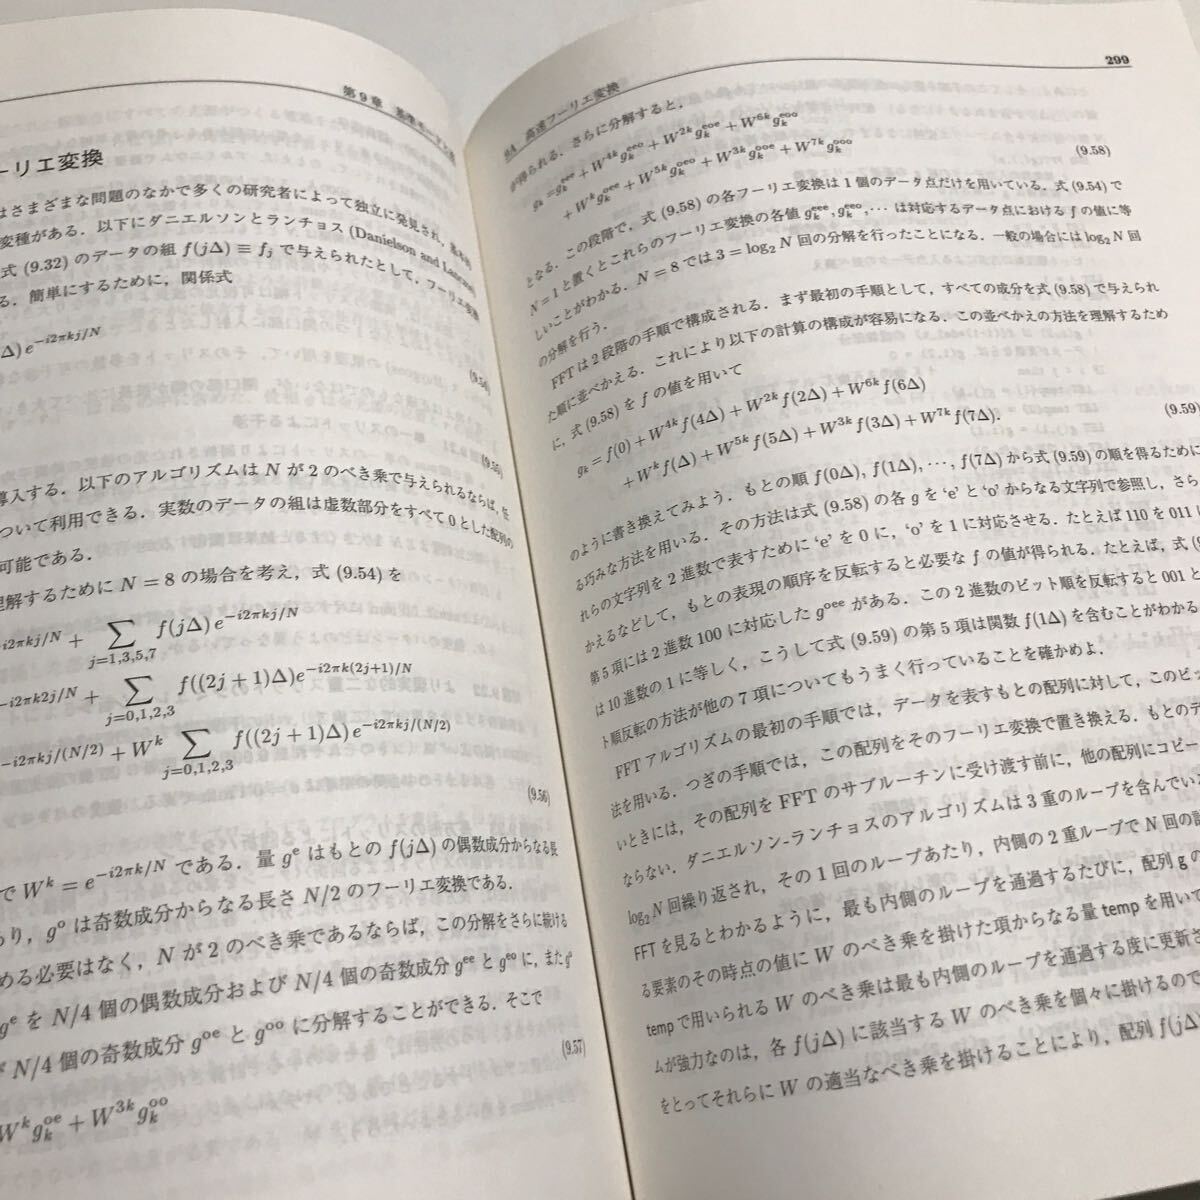 第9章 基準モード
ーリエ変換
はさまざまな問題のなかで多くの研究者によって独立に発見され，
変種がある．以下にダニエルソンとランチョス (Danielson and Lanczos)
式 (9.32) のデータの組 f(jΔ) ≡ fj で与えられたとして，フーリエ変換
る．簡単にするために，関係式
Δ) e^{−i2πkj/N}
(9.54)
(9.55)
導入する．以下のアルゴリズムは N が2のべき乗で与えられるならば，任
ついて利用できる．実数のデータの組は虚数部分をすべて0とした配列の
可能である．
理解するために N = 8 の場合を考え，式 (9.54) を
−i2πkj/N + ∑_{j=1,3,5,7} f(jΔ) e^{−i2πkj/N}
−i2πk2j/N + ∑_{j=0,1,2,3} f((2j+1)Δ)e^{−i2πk(2j+1)/N}
−i2πkj/(N/2) + W^k ∑_{j=0,1,2,3} f((2j+1)Δ) e^{−i2πkj/(N/2)}
(9.56)
で W^k = e^{−i2πk/N} である．量 g^e はもとの f(jΔ) の偶数成分からなる長
あり，g^o は奇数成分からなる長さ N/2 のフーリエ変換である．
める必要はなく，N が2のべき乗であるならば，この分解をさらに続ける
g^e を N/4 個の偶数成分および N/4 個の奇数成分 g^{ee} と g^{eo} に，また g^o
N/4 個の奇数成分 g^{oe} と g^{oo} に分解することができる．そこで
(9.57)
W^k g_k^{oe} + W^{3k} g_k^{oo}
9A 高速フーリエ変換 299
が得られる．さらに分解すると，
g_k = g_k^{eee} + W^{4k} g_k^{eeo} + W^{2k} g_k^{eoe} + W^{6k} g_k^{eoo}
+ W^k g_k^{oee} + W^{5k} g_k^{oeo} + W^{3k} g_k^{ooe} + W^{7k} g_k^{ooo}
(9.58)
となる．この段階で，式 (9.58) の各フーリエ変換は1個のデータ点だけを用いている．式 (9.54) で
N = 1 と置くとこれらのフーリエ変換の各値 g_k^{eee}, g_k^{eeo}, ⋯ は対応するデータ点における f の値に等
しいことがわかる．N = 8 では 3 = log₂ N 回の分解を行ったことになる．一般の場合には log₂ N 回
の分解を行う．
FFT は2段階の手順で構成される．まず最初の手順として，すべての成分を式 (9.58) で与えられ
た順に並べかえる．これにより以下の計算の構成が容易になる．この並べかえの方法を理解するため
に，式 (9.58) を f の値を用いて
g_k = f(0) + W^{4k} f(4Δ) + W^{2k} f(2Δ) + W^{6k} f(6Δ)
+ W^k f(Δ) + W^{5k} f(5Δ) + W^{3k} f(3Δ) + W^{7k} f(7Δ).
(9.59)
のように書き換えてみよう．もとの順 f(0Δ), f(1Δ), ⋯, f(7Δ) から式 (9.59) の順を得るために
る巧みな方法を用いる．その方法は式 (9.58) の各 g を ‘e’ と ‘o’ からなる文字列で参照し，さら
れらの文字列を2進数で表すために ‘e’ を0に，‘o’ を1に対応させる．たとえば 110 を 011
かえるなどして，もとの表現の順序を反転すると必要な f の値が得られる．たとえば，式 (9
第5項には2進数 100 に対応した g^{oee} がある．この2進数のビット順を反転すると 001 と
は10進数の1に等しく，こうして式 (9.59) の第5項は関数 f(1Δ) を含むことがわかる
ト順反転の方法が他の7項についてもうまく行っていることを確かめよ．
FFT アルゴリズムの最初の手順では，データを表すもとの配列に対して，このビッ
法を用いる．つぎの手順では，この配列をそのフーリエ変換で置き換える．もとのデ
いときには，その配列を FFT のサブルーチンに受け渡す前に，他の配列にコピー
ならない．ダニエルソン-ランチョスのアルゴリズムは3重のループを含んでい
log₂ N 回繰り返され，その1回のループあたり，内側の2重ループで N 回の計
FFT を見るとわかるように，最も内側のループを通過するたびに，配列 g の
る要素のその時点の値に W のべき乗を掛けた項からなる量 temp を用いて
temp で用いられる W のべき乗は最も内側のループを通過する度に更新さ
ムが強力なのは，各 f(jΔ) に該当する W のべき乗を個々に掛けるので
をとってそれらに W の適当なべき乗を掛けることにより，配列 f(jΔ)